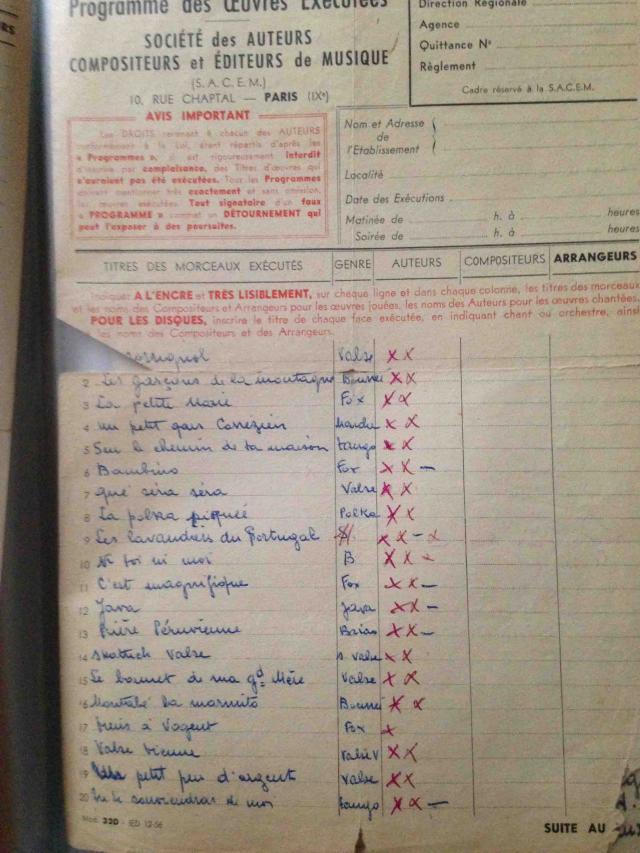 Programme des Œuvres Exécutées
SOCIÉTÉ des AUTEURS
COMPOSITEURS et ÉDITEURS de MUSIQUE
(S.A.C.E.M.)
10, RUE CHAPTAL — PARIS (IXe)
Direction Régionale
Agence
Quittance N°
Règlement
Cadre réservé à la S.A.C.E.M.
AVIS IMPORTANT
Les DROITS revenant à chacun des AUTEURS
conformément à la Loi, étant répartis d'après les
« Programmes », il est rigoureusement interdit
d'inscrire par complaisance, des Titres d'œuvres qui
n'auraient pas été exécutées. Tous les Programmes
doivent mentionner très exactement et sans omission,
les œuvres exécutées. Tout signataire d'un faux
« PROGRAMME » commet un DÉTOURNEMENT qui
peut l'exposer à des poursuites.
Nom et Adresse
de
l'Etablissement
Localité
Date des Exécutions
Matinée de h. à heures
Soirée de h. à heures
TITRES DES MORCEAUX EXÉCUTÉS GENRE AUTEURS COMPOSITEURS ARRANGEURS
Indiquer A L'ENCRE et TRÈS LISIBLEMENT, sur chaque ligne et dans chaque colonne, les titres des morceaux
et les noms des Compositeurs et Arrangeurs pour les œuvres jouées, les noms des Auteurs pour les œuvres chantées.
POUR LES DISQUES, inscrire le titre de chaque face exécutée, en indiquant chant ou orchestre, ainsi
les noms des Compositeurs et des Arrangeurs.
Valse x x
2 Les garçons de la montagne x x
3 La petite Marie Fox x x
4 un petit gars Corrézien x x
5 Sur le chemin de ta maison tango x x
6 Bambino Fox x x —
7 que séra séra Valse x x
8 La polka piquée Polka x x
9 Les lavandières du Portugal x x — x
10 Ni toi ni moi B x x x
11 C'est magnifique Fox x x —
12 Java Java x x —
13 Prière Péruvienne Baiao x x —
14 Valse s. valse x x
15 Le bonnet de ma gd Mère Valse x x
16 x x
17 à Fox x
18 Valse x x
19 petit peu d'argent Valse x x
20 souviendras de moi tango x x —
Mod. 320 - IED 12-56
SUITE AU